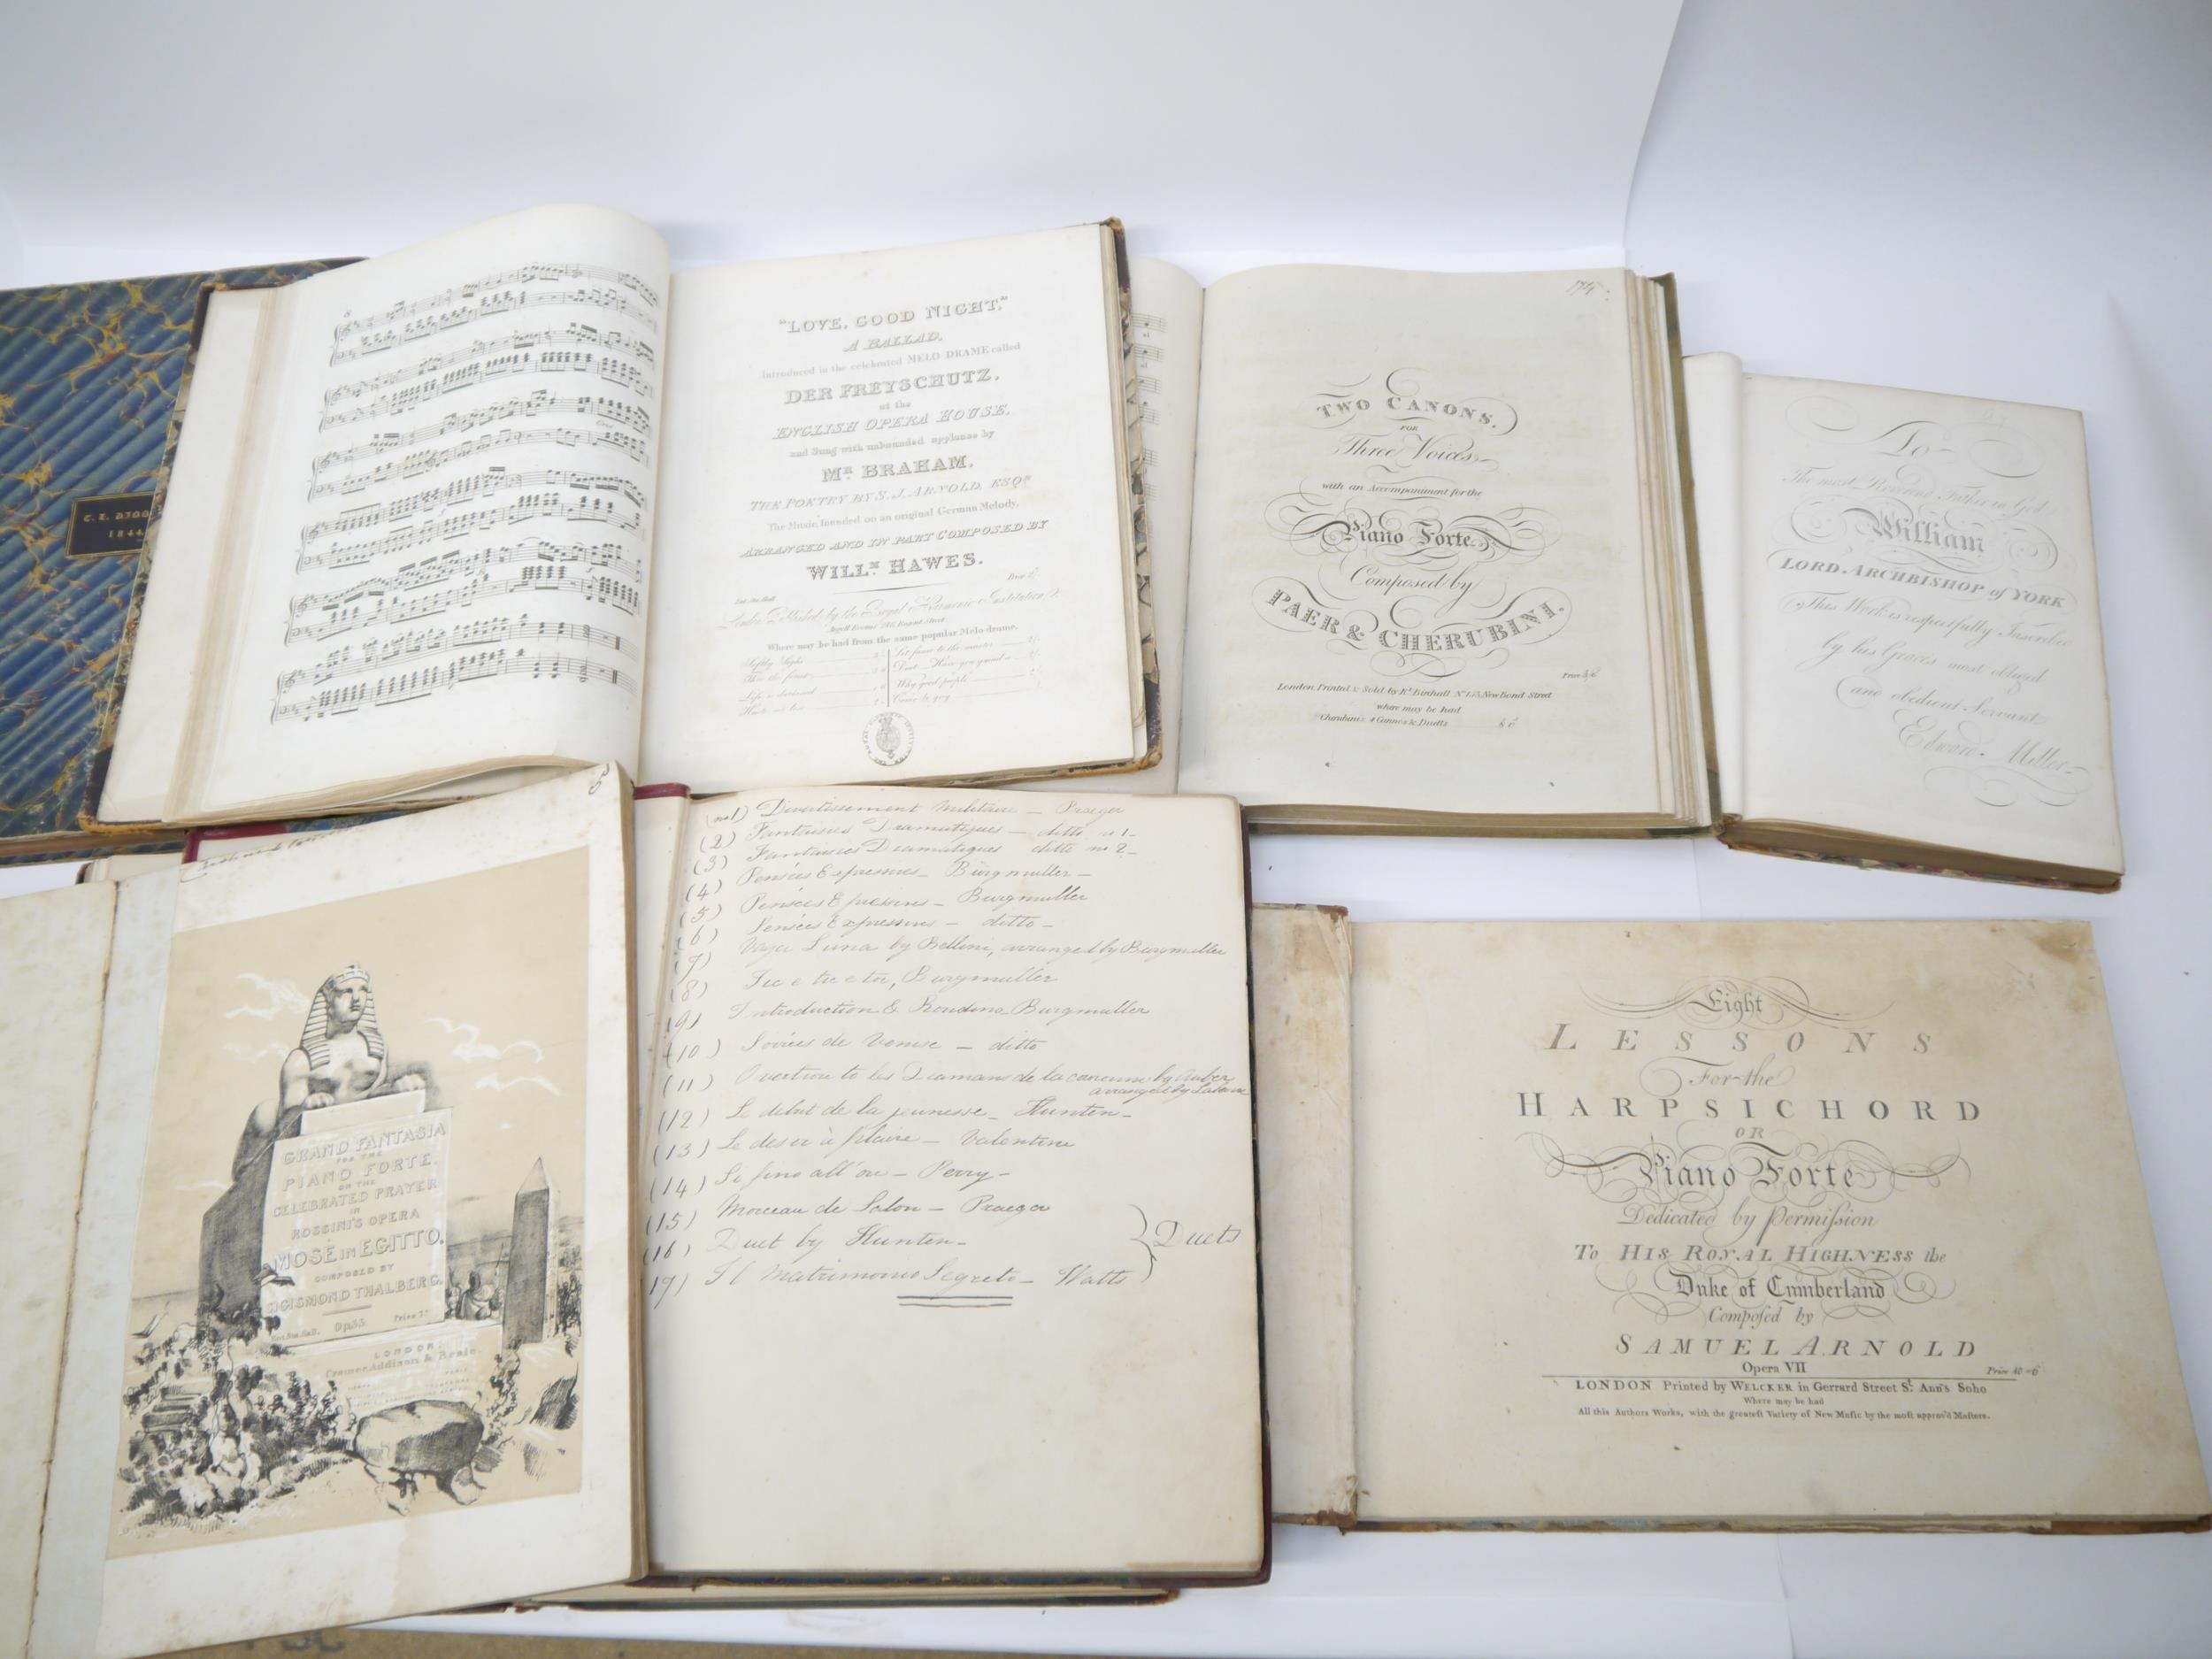 C. E.
1844.
"LOVE, GOOD NIGHT."
A BALLAD,
Introduced in the celebrated MELO DRAME called
DER FREYSCHUTZ,
at the
ENGLISH OPERA HOUSE,
and Sung with unbounded applause by
MR. BRAHAM,
THE POETRY BY S. J. ARNOLD, ESQR.
The Music founded on an original German Melody,
ARRANGED AND IN PART COMPOSED BY
WILLM. HAWES.
Price 2/
London, Published by the Royal Harmonic Institution,
Argyll Rooms 246, Regent Street.
Where may be had from the same popular Melo-drame,
TWO CANONS,
FOR
Three Voices,
with an Accompaniment for the
Piano Forte,
Composed by
PAER & CHERUBINI.
London, Printed & Sold by Rt. Birchall No. 133, New Bond Street
where may be had
Cherubini's 4 Canons & Duetts
To
The most Reverend Father in God
William
LORD ARCHBISHOP of YORK
This Work is respectfully Inscribed
by his Graces most obliged
and obedient Servant
Edward Miller
GRAND FANTASIA
FOR THE
PIANO FORTE,
ON THE
CELEBRATED PRAYER
IN
ROSSINI'S OPERA
MOSÉ IN EGITTO,
COMPOSED BY
SIGISMOND THALBERG.
Ent. Sta. Hall. Op. 33. Price
LONDON.
Cramer, Addison & Beale.
(no 1) Divertissement Militaire – Praeger
(2) Fantaisies Dramatiques – ditto no 1–
(3) Fantaisies Dramatiques ditto no 2–
(4) Pensées Expressives – Burgmuller –
(5) Pensées Expressives – Burgmuller
(6) Pensées Expressives – ditto –
(7) Vaga Luna by Bellini, arranged by Burgmuller
(8) Tic e tic e toc, Burgmuller
(9) Introduction & Rondino Burgmuller
(10) Soirées de Venise – ditto
(11) Overture to les Diamans de la couronne by Auber
arranged by
(12) Le debut de la jeunesse – Hunten –
(13) Le desir à plaire – Valentine
(14) Se fino all'ore – Perry –
(15) Morceau de Salon – Praeger
(16) Duet by Hunten –
(17) Il Matrimonio Segreto – Watts
} Duets
Eight
LESSONS
For the
HARPSICHORD
OR
Piano Forte
Dedicated by Permission
To HIS ROYAL HIGHNESS the
Duke of Cumberland
Composed by
SAMUEL ARNOLD
Opera VII
Price 10=6
LONDON Printed by WELCKER in Gerrard Street St. Ann's Soho
Where may be had
All this Authors Works, with the greatest Variety of New Music by the most approv'd Masters.